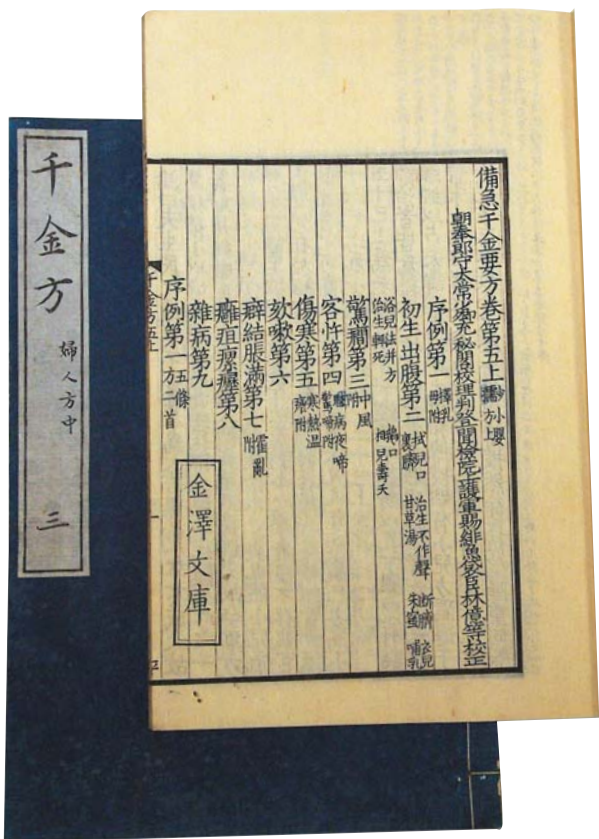 千金方 婦人方中 三
備急千金要方卷第五上 少小嬰孺方上
朝奉郎守太常少卿充秘閣校理判登聞檢院上護軍賜緋魚袋臣林億等校正
序例第一 擇乳母附
初生出腹第二 拭兒口 治生不作聲 斷臍 衣兒
裹臍 甘草湯 朱蜜 哺乳
浴兒法并方
治生輒死 相兒壽夭
驚癇第三 中風附
客忤第四 夜啼
驚啼附
傷寒第五 寒熱溫瘧附
欬嗽第六
癖結脹滿第七 霍亂附
癰疽瘰癧第八
雜病第九
序例第一 五條 方二首
千金方五上
一
金澤文庫